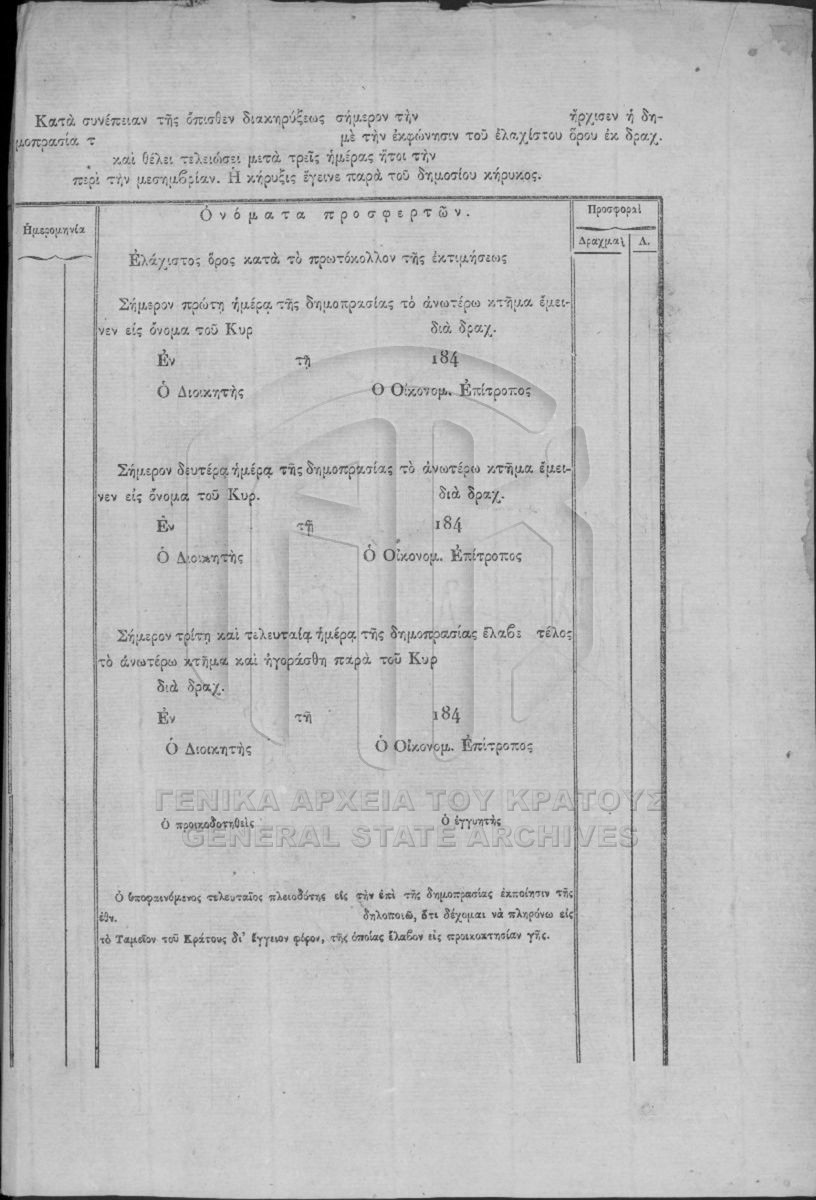 Κατὰ συνέπειαν τῆς ὄπισθεν διακηρύξεως σήμερον τὴν ἤρχισεν ἡ δη-
μοπρασία τ μὲ τὴν ἐκφώνησιν τοῦ ἐλαχίστου ὅρου ἐκ δραχ.
καὶ θέλει τελειώσει μετὰ τρεῖς ἡμέρας ἤτοι τὴν
περὶ τὴν μεσημβρίαν. Ἡ κήρυξις ἔγεινε παρὰ τοῦ δημοσίου κήρυκος.
Ἡμερομηνία
Ὀνόματα προσφερτῶν.
Προσφοραὶ
Δραχμαὶ Λ.
Ἐλάχιστος ὅρος κατὰ τὸ πρωτόκολλον τῆς ἐκτιμήσεως
Σήμερον πρώτη ἡμέρᾳ τῆς δημοπρασίας τὸ ἀνωτέρω κτῆμα ἔμει-
νεν εἰς ὄνομα τοῦ Κυρ διὰ δραχ.
Ἐν τῇ 184
Ὁ Διοικητὴς Ο Οἰκονομ. Ἐπίτροπος
Σήμερον δευτέρᾳ ἡμέρᾳ τῆς δημοπρασίας τὸ ἀνωτέρω κτῆμα ἔμει-
νεν εἰς ὄνομα τοῦ Κυρ. διὰ δραχ.
Ἐν τῇ 184
Ὁ Διοικητὴς Ὁ Οἰκονομ. Ἐπίτροπος
Σήμερον τρίτῃ καὶ τελευταίᾳ ἡμέρᾳ τῆς δημοπρασίας ἔλαβε τέλος
τὸ ἀνωτέρω κτῆμα καὶ ἠγοράσθη παρὰ τοῦ Κυρ
διὰ δραχ.
Ἐν τῇ 184
Ὁ Διοικητὴς Ὁ Οἰκονομ. Ἐπίτροπος
ΓΕΝΙΚΑ ΑΡΧΕΙΑ ΤΟΥ ΚΡΑΤΟΥΣ
Ὁ προικοδοτηθεὶς Ὁ ἐγγυητὴς
GENERAL STATE ARCHIVES
Ὁ ὑποφαινόμενος τελευταῖος πλειοδότης εἰς τὴν ἐπὶ τῆς δημοπρασίας ἐκποίησιν τῆς
ἐθν. δηλοποιῶ, ὅτι δέχομαι νὰ πληρόνω εἰς
τὸ Ταμεῖον τοῦ Κράτους δι' ἔγγειον φόρον, τῆς ὁποίας ἔλαβον εἰς προικοκτησίαν γῆς.